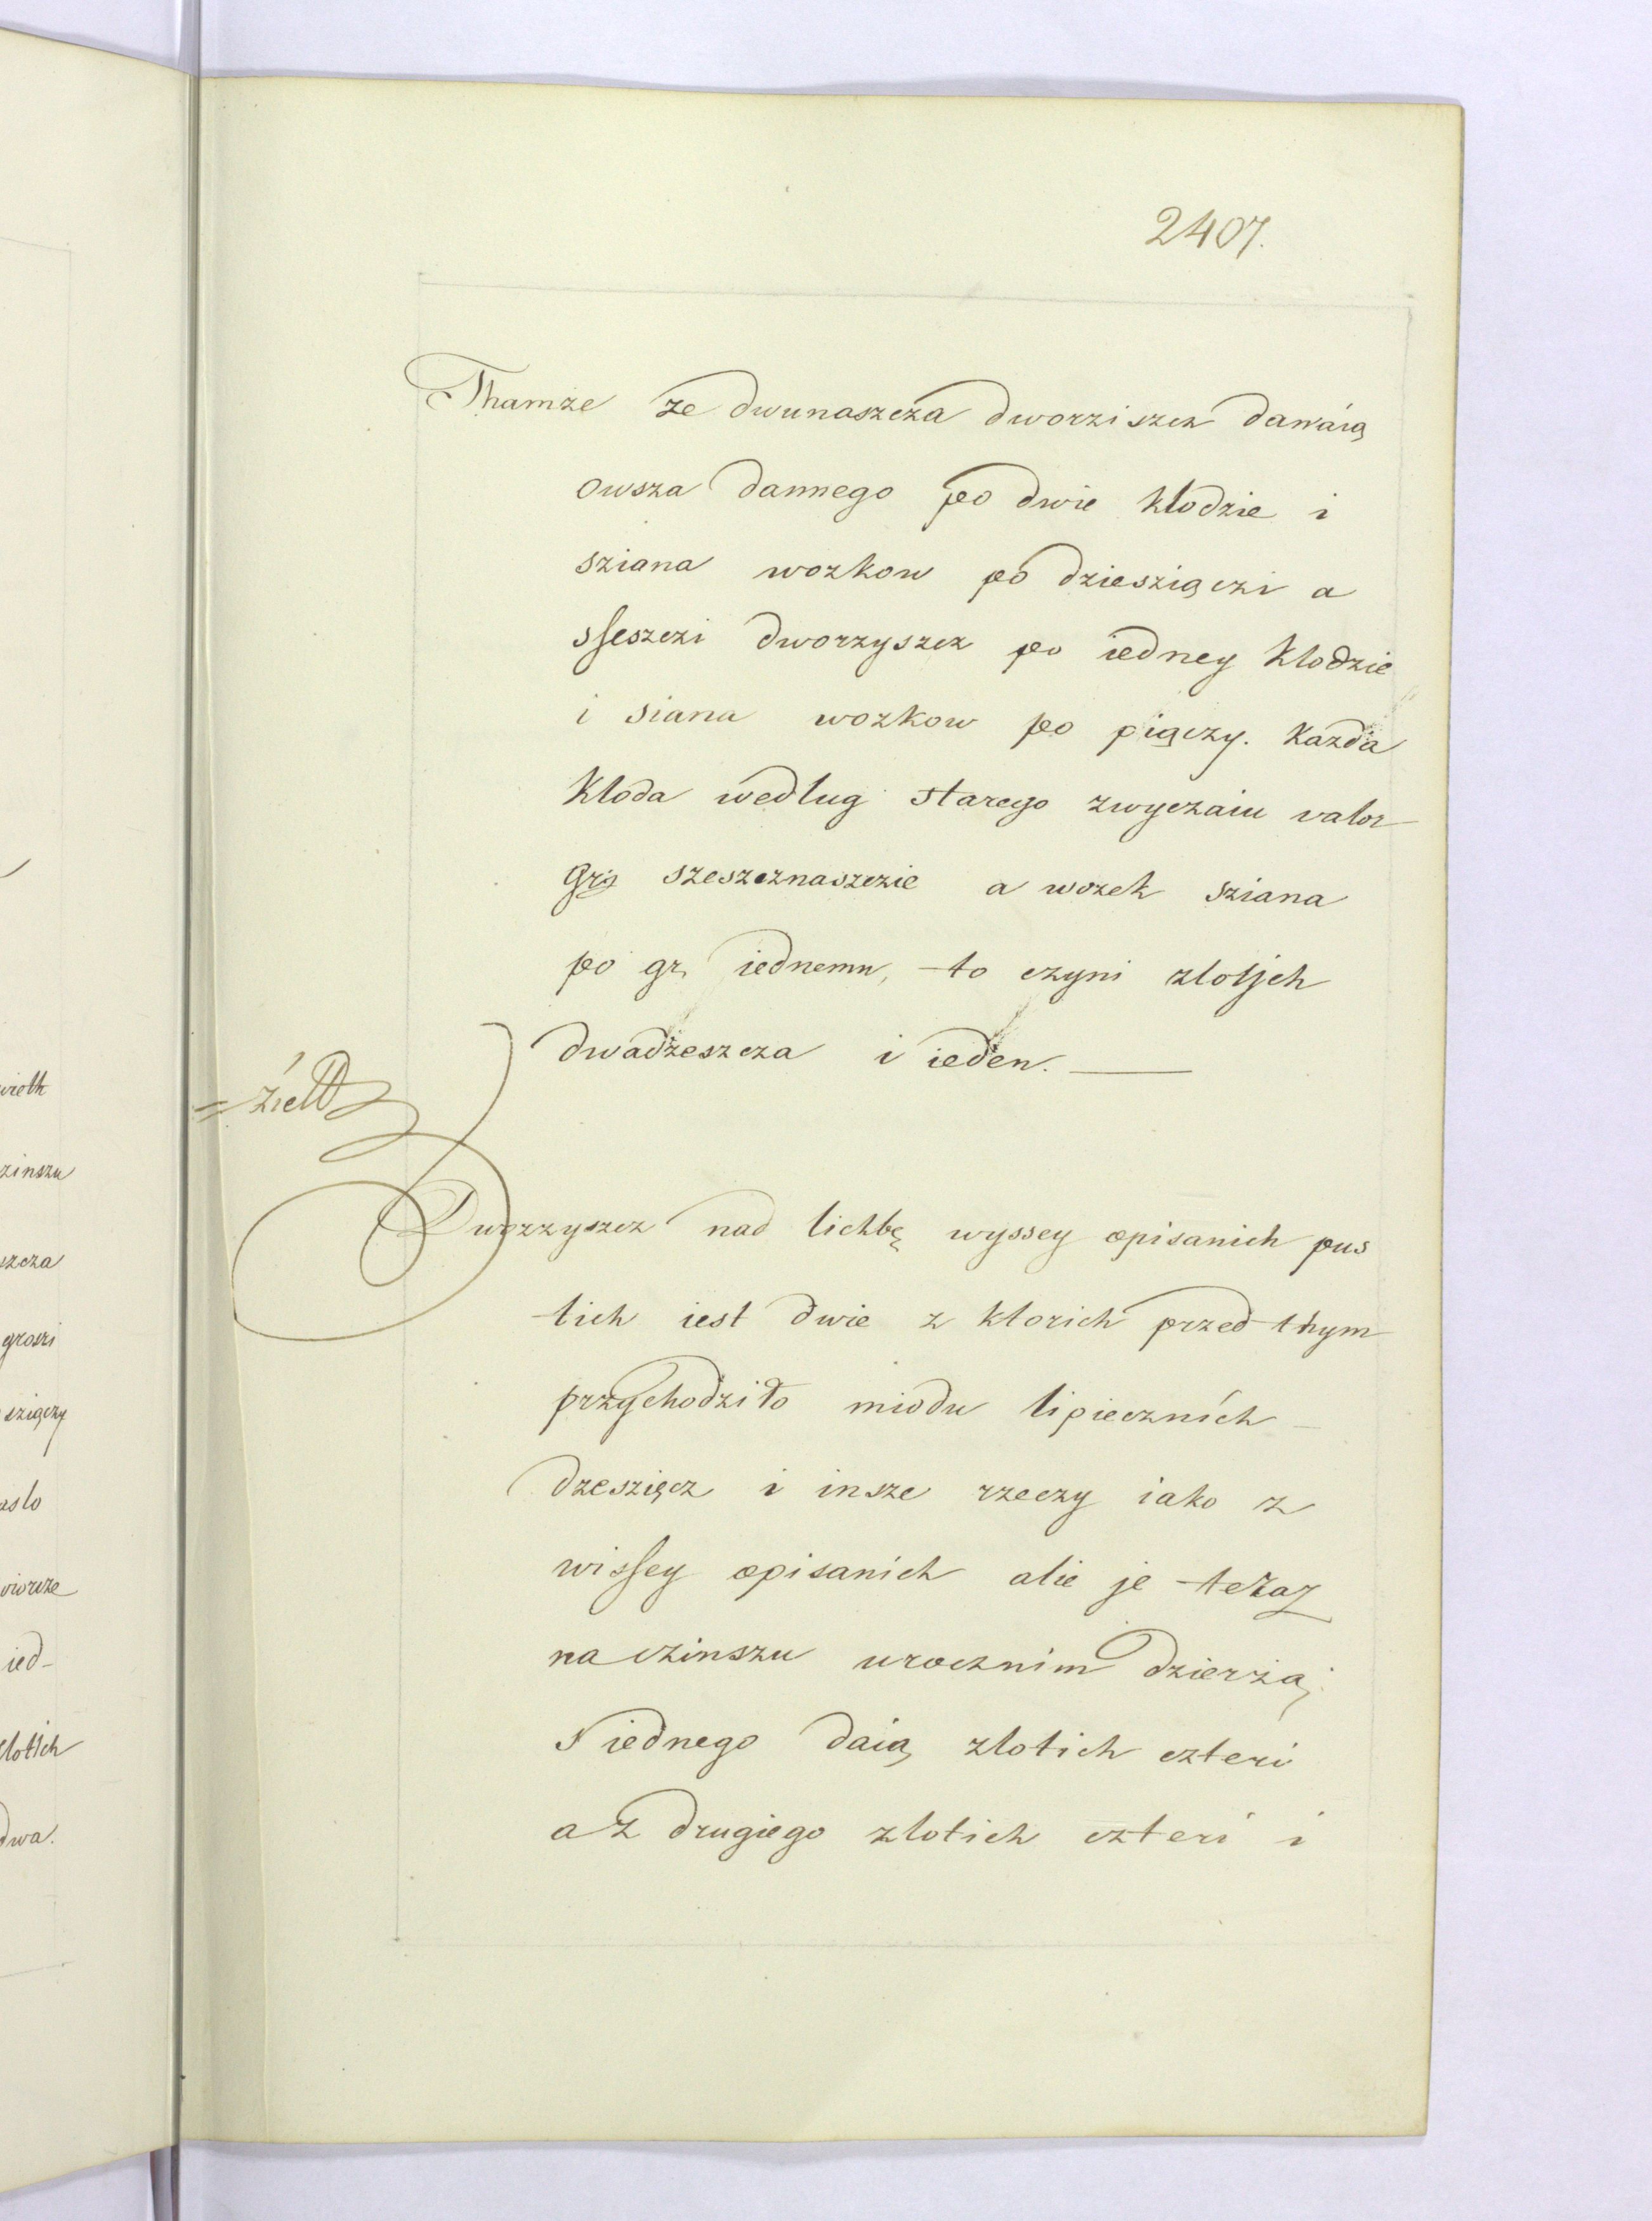 2407.
Thamże ze dwunaszcza dworziszcz dawáią
owsza dannego po dwie kłodzie i
sziana wozkow po dziesziączi a
sseszczi dworzyszcz po iedney Klodzie
i siana wozkow po piączy. Każda
Kloda według starego zwyczaiu valor
grs szeszcznaszczie a wozek sziana
po gr. iednemu, to czyni zlotych
dwadzeszcza i ieden.
Dworzyszcz nad lichbę wyssey opisanich pus
tich iest dwie z ktorich przed thym
przychodziło miodu lipiecznich
dzeszięcz i insze rzeczy iako z
wissey opisanich alie je teraz
na czinszu urocznim dzierżą;
s iednego daią zlotich czteri
a z drugiego zlotich czteri i
wieth
zinszu
szcza
groszi
sziączy
aslo
ied-
zlotich
dwa.